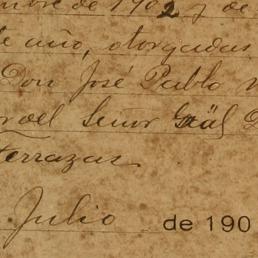 de 1902 y de
de año, otorgadas
Don José Pablo
del Señor Gräl
Terrazas
Julio de 190